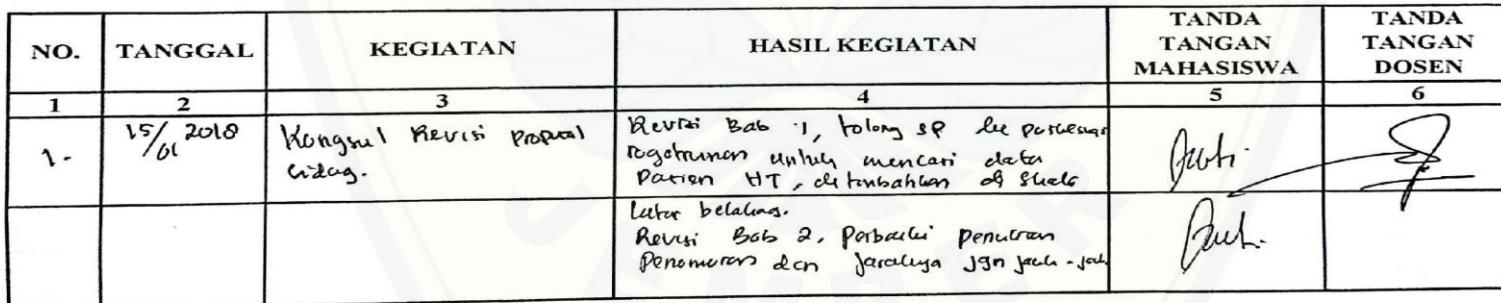 NO. TANGGAL KEGIATAN HASIL KEGIATAN TANDA TANGAN MAHASISWA TANDA TANGAN DOSEN
1 2 3 4 5 6
1. 15/01 2018 Konsul Revisi proposal sidang. Revisi Bab 1, tolong ke puskesmas
untuk mencari data
Pasien HT, ditambahkan di
latar belakang.
Revisi Bab 2, Perbaiki penulisan
Penomoran dan jaraknya jgn jauh-jauh
JEMBER